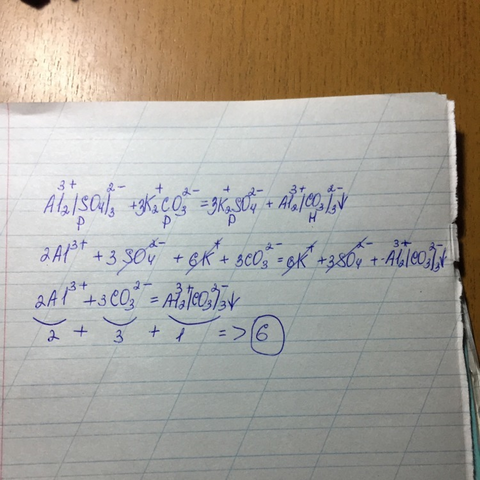 Al₂³⁺(SO₄)₃²⁻ + 3K₂⁺CO₃²⁻ = 3K₂⁺SO₄²⁻ + Al₂³⁺(CO₃)₃²⁻↓
P P P H
2Al³⁺ + 3SO₄²⁻ + 6K⁺ + 3CO₃²⁻ = 6K⁺ + 3SO₄²⁻ + Al₂³⁺(CO₃)₃²⁻↓
2Al³⁺ + 3CO₃²⁻ = Al₂³⁺(CO₃)₃²⁻↓
2 + 3 + 1 => 6